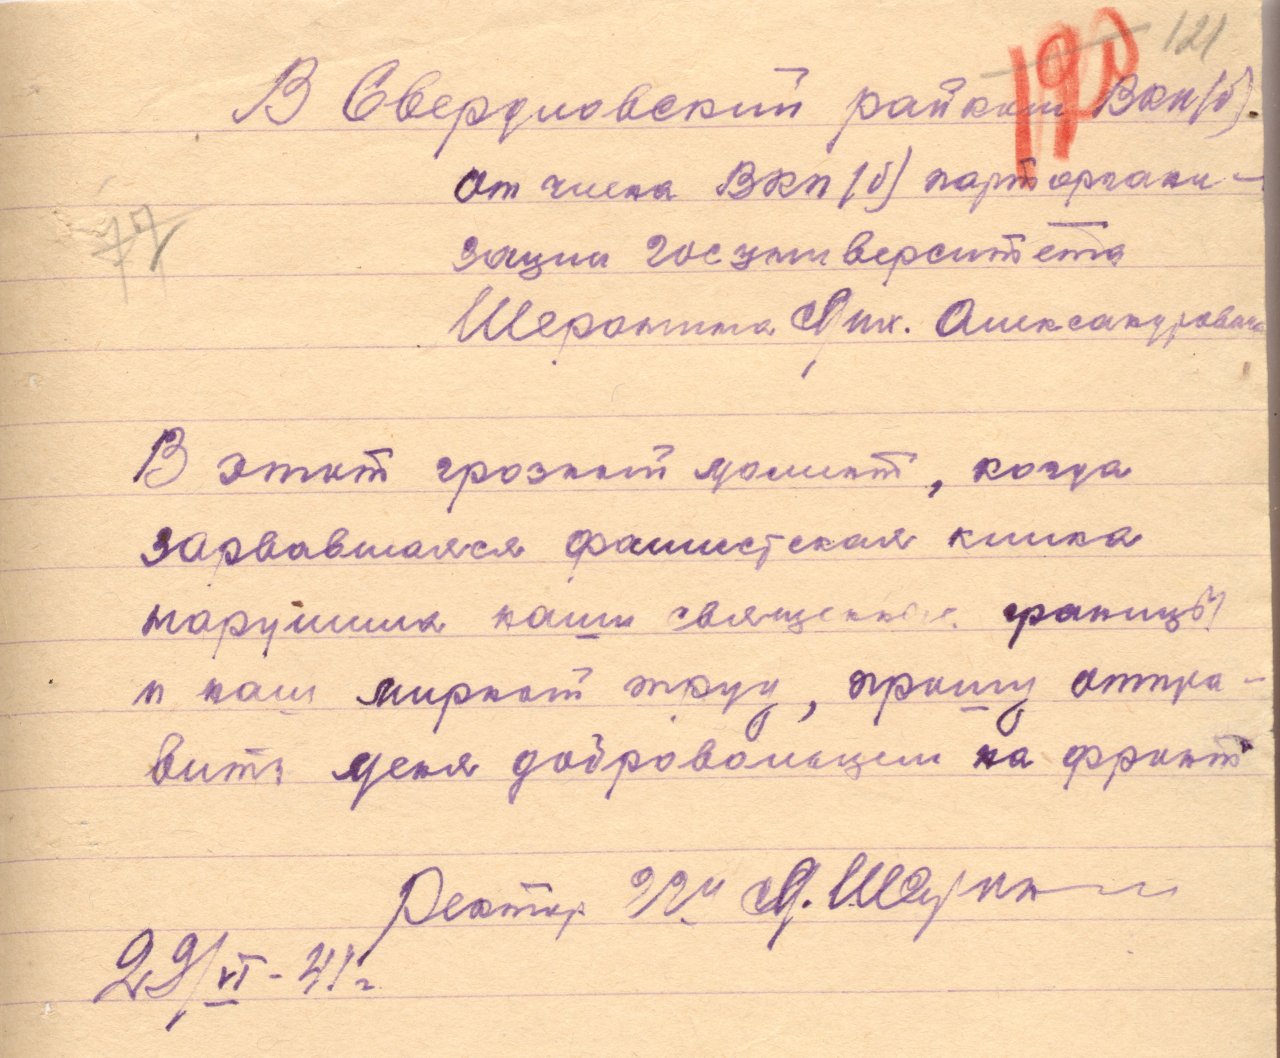 190 121
В Свердловский райком ВКП(б)
от члена ВКП(б) парторгани-
зации госуниверситета
77
Мих. Александровича
В этот грозный момент, когда
зарвавшаяся фашистская клика
нарушила наши священные границы
и наш мирный труд, прошу отпра-
вить меня добровольцем на фронт
Ректор М.
29/VI-41г